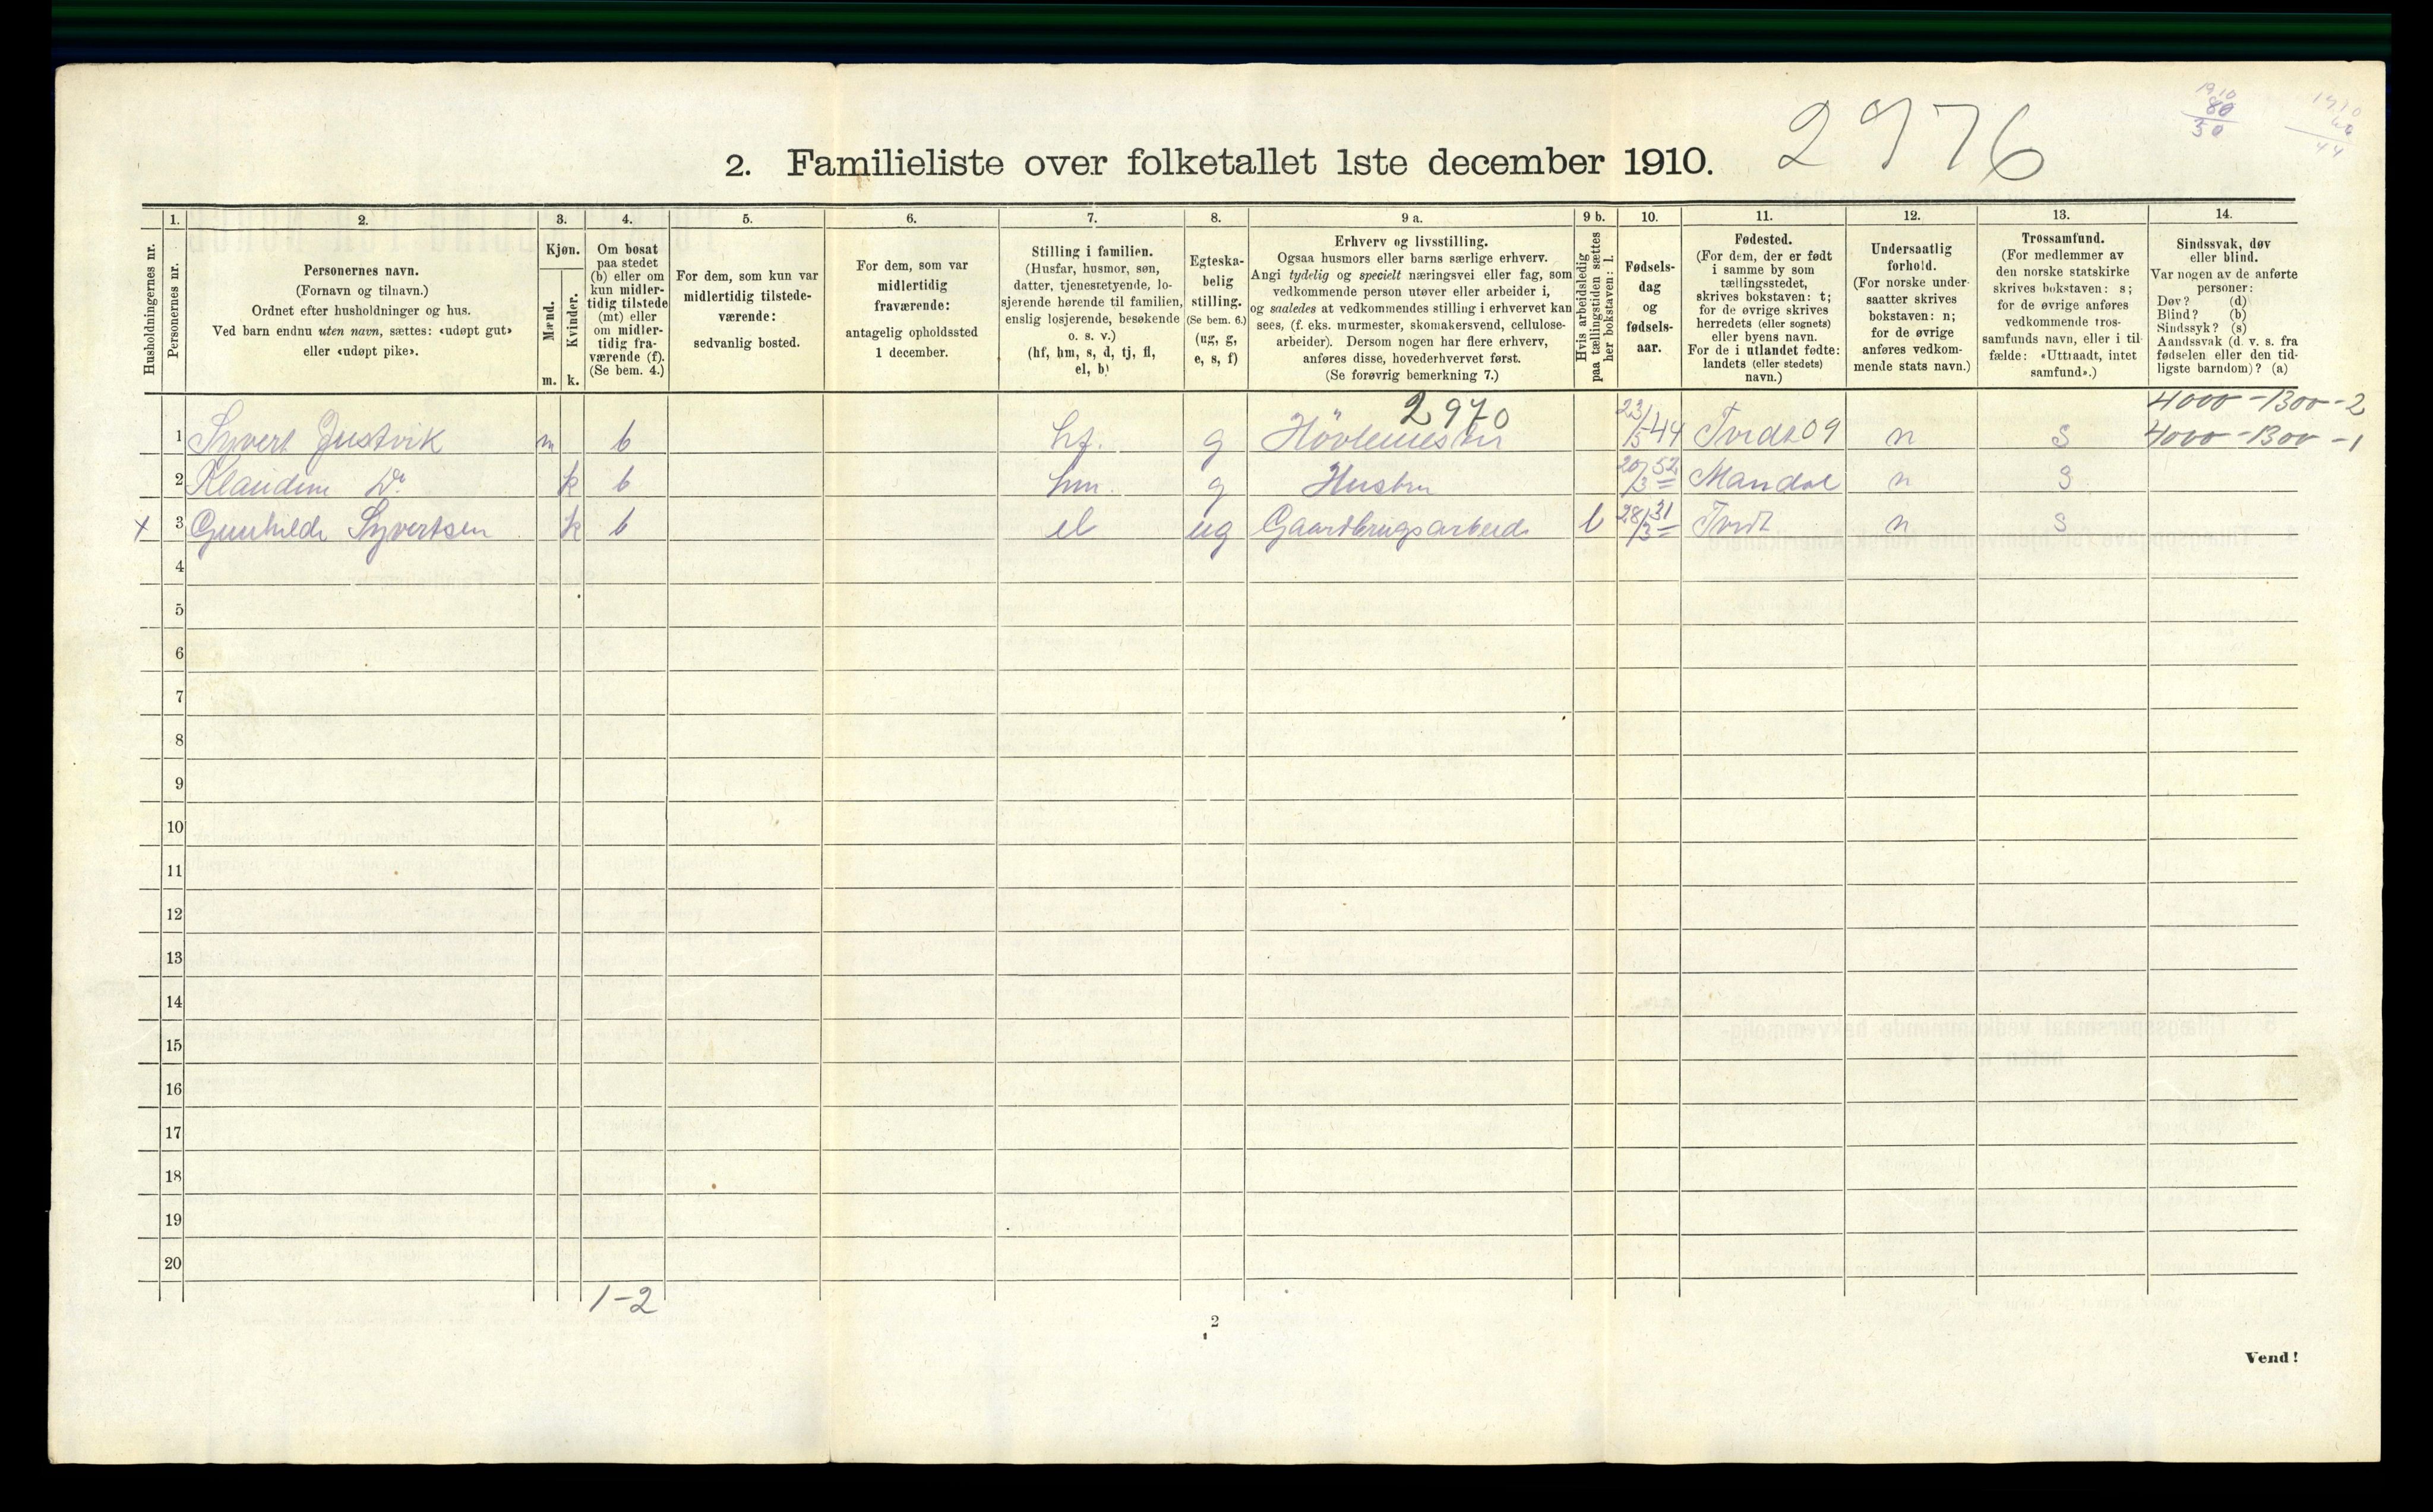 1910
80
30
1910
44
2976
2. Familieliste over folketallet 1ste december 1910.
1. 2. 3. 4. 5. 6. 7. 8. 9 a. 9 b. 10. 11. 12. 13. 14.
Husholdningernes nr.
Personernes nr.
Personernes navn.
(Fornavn og tilnavn.)
Ordnet efter husholdninger og hus.
Ved barn endnu uten navn, sættes: «udøpt gut»
eller «udøpt pike».
Kjøn.
Mænd.
Kvinder.
m. k.
Om bosat
paa stedet
(b) eller om
kun midler-
tidig tilstede
(mt) eller
om midler-
tidig fra-
værende (f).
(Se bem. 4.)
For dem, som kun var
midlertidig tilstede-
værende:
sedvanlig bosted.
For dem, som var
midlertidig
fraværende:
antagelig opholdssted
1 december.
Stilling i familien.
(Husfar, husmor, søn,
datter, tjenestetyende, lo-
sjerende hørende til familien,
enslig losjerende, besøkende
o. s. v.)
(hf, hm, s, d, tj, fl,
el, b)
Egteska-
belig
stilling.
(Se bem. 6.)
(ug, g,
e, s, f)
Erhverv og livsstilling.
Ogsaa husmors eller barns særlige erhverv.
Angi tydelig og specielt næringsvei eller fag, som
vedkommende person utøver eller arbeider i,
og saaledes at vedkommendes stilling i erhvervet kan
sees, (f. eks. murmester, skomakersvend, cellulose-
arbeider). Dersom nogen har flere erhverv,
anføres disse, hovederhvervet først.
(Se forøvrig bemerkning 7.)
Hvis arbeidsledig
paa tællingstiden sættes
her bokstaven: l.
Fødsels-
dag
og
fødsels-
aar.
Fødested.
(For dem, der er født
i samme by som
tællingsstedet,
skrives bokstaven: t;
for de øvrige skrives
herredets (eller sognets)
eller byens navn.
For de i utlandet fødte:
landets (eller stedets)
navn.)
Undersaatlig
forhold.
(For norske under-
saatter skrives
bokstaven: n;
for de øvrige
anføres vedkom-
mende stats navn.)
Trossamfund.
(For medlemmer av
den norske statskirke
skrives bokstaven: s;
for de øvrige anføres
vedkommende tros-
samfunds navn, eller i til-
fælde: «Uttraadt, intet
samfund».)
Sindssvak, døv
eller blind.
Var nogen av de anførte
personer:
Døv? (d)
Blind? (b)
Sindssyk? (s)
Aandssvak (d. v. s. fra
fødselen eller den tid-
ligste barndom)? (a)
2970
4000-1300-2
1 Syvert Justvik m b hf. g Høvlemester 23/5-44 Tveidt 09 n s 4000-1300-1
2 Klaudine Do k b hm. g Hustru 20/3 52 Mandal n s
x 3 Gunhilde Syvertsen k b el ug Gaardbrugsarbeide l 28/3 31 Tveit n s
4
5
6
7
8
9
10
11
12
13
14
15
16
17
18
19
20
1-2
2
Vend!